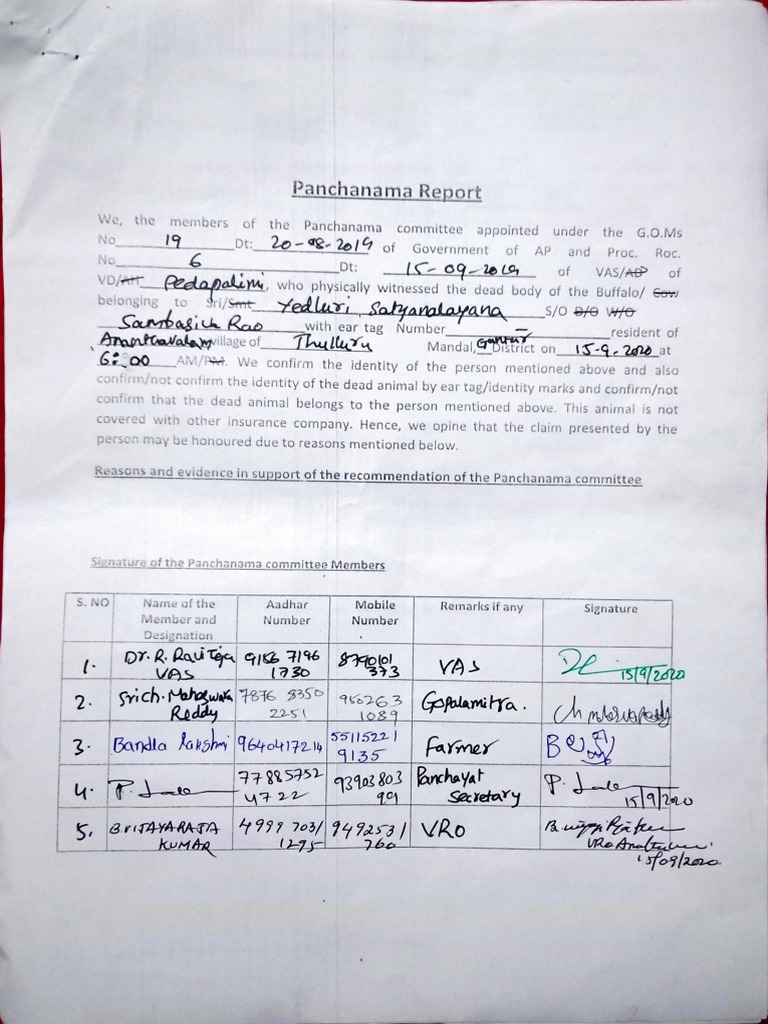 Panchanama Report
We, the members of the Panchanama committee appointed under the G.O.Ms
No 19 Dt: 20-08-2019 of Government of AP and Proc. Roc.
No 6 Dt: 15-09-2019 of VAS/ADP of
VD/AH Pedapalimi, who physically witnessed the dead body of the Buffalo/ Cow
belonging to Sri/Smt Yedluri Satyanalayana S/O D/O W/O
Sambasiva Rao with ear tag Number - resident of
Ananthavalam village of Thulluru Mandal, Guntur District on 15-9-2020 at
6:00 AM/PM. We confirm the identity of the person mentioned above and also
confirm/not confirm the identity of the dead animal by ear tag/identity marks and confirm/not
confirm that the dead animal belongs to the person mentioned above. This animal is not
covered with other insurance company. Hence, we opine that the claim presented by the
person may be honoured due to reasons mentioned below.
Reasons and evidence in support of the recommendation of the Panchanama committee
Signature of the Panchanama committee Members
S. NO Name of the Aadhar Mobile Remarks if any Signature
Member and Number Number
Designation
1. Dr. R. Ravi Teja 9156 7196 8790101 VAS
VAS 1730 373 15/9/2020
2. Srich. Maheswara 7876 8350 950263 Gopalamitra.
Reddy 2251 1089
3. Bandla Lakshmi 9640417214 55115221 Farmer
9135
4. P. 77885752 93903803 Panchayat P.
4722 99 Secretary 15/9/2020
5. B.VIJAYARAJA 4999 7031 9492531 VRO
KUMAR 1295 760 VRO
15/09/2020.